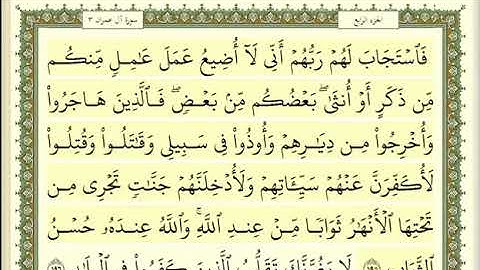 الجزء الرابع
سورة آل عمران ٣
فَٱسْتَجَابَ لَهُمْ رَبُّهُمْ أَنِّى لَآ أُضِيعُ عَمَلَ عَـٰمِلٍ مِّنكُم
مِّن ذَكَرٍ أَوْ أُنثَىٰ ۖ بَعْضُكُم مِّنۢ بَعْضٍ ۖ فَٱلَّذِينَ هَاجَرُوا۟
وَأُخْرِجُوا۟ مِن دِيَـٰرِهِمْ وَأُوذُوا۟ فِى سَبِيلِى وَقَـٰتَلُوا۟ وَقُتِلُوا۟
لَأُكَفِّرَنَّ عَنْهُمْ سَيِّـَٔاتِهِمْ وَلَأُدْخِلَنَّهُمْ جَنَّـٰتٍ تَجْرِى مِن
تَحْتِهَا ٱلْأَنْهَـٰرُ ثَوَابًا مِّنْ عِندِ ٱللَّهِ ۗ وَٱللَّهُ عِندَهُۥ حُسْنُ
ٱلثَّوَابِ ١٩٥ لَا يَغُرَّنَّكَ تَقَلُّبُ ٱلَّذِينَ كَفَرُوا۟ فِى ٱلْبِلَـٰدِ ١٩٦